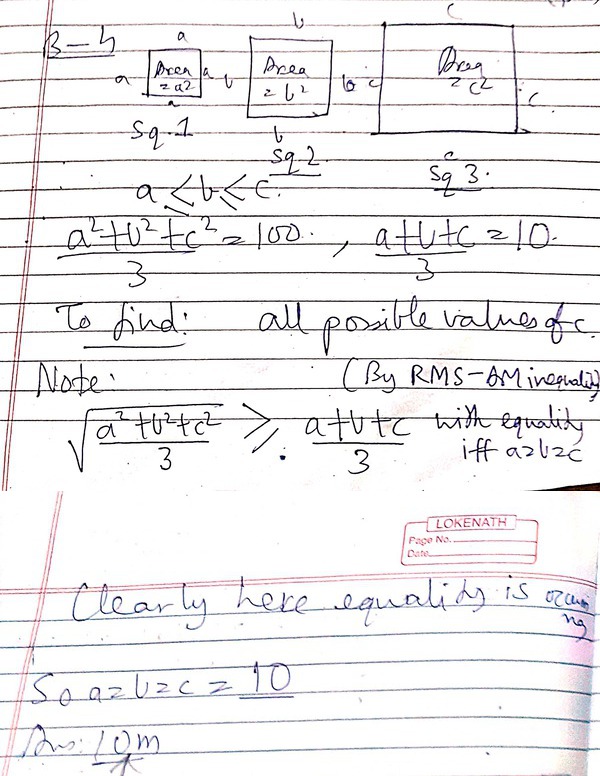 B-4
a b c
a Area = a² a b Area = b² b c Area = c² c
a b c
Sq.1 Sq 2 Sq 3.
a ≤ b ≤ c.
a²+b²+c²/3 = 100. , a+b+c/3 = 10.
To find: all possible values of c.
Note: (By RMS-AM inequality)
√a²+b²+c²/3 ≥ a+b+c/3 with equality
iff a=b=c
LOKENATH
Page No.
Date
Clearly here equality is occuring
So a=b=c = 10
Ans: 10m